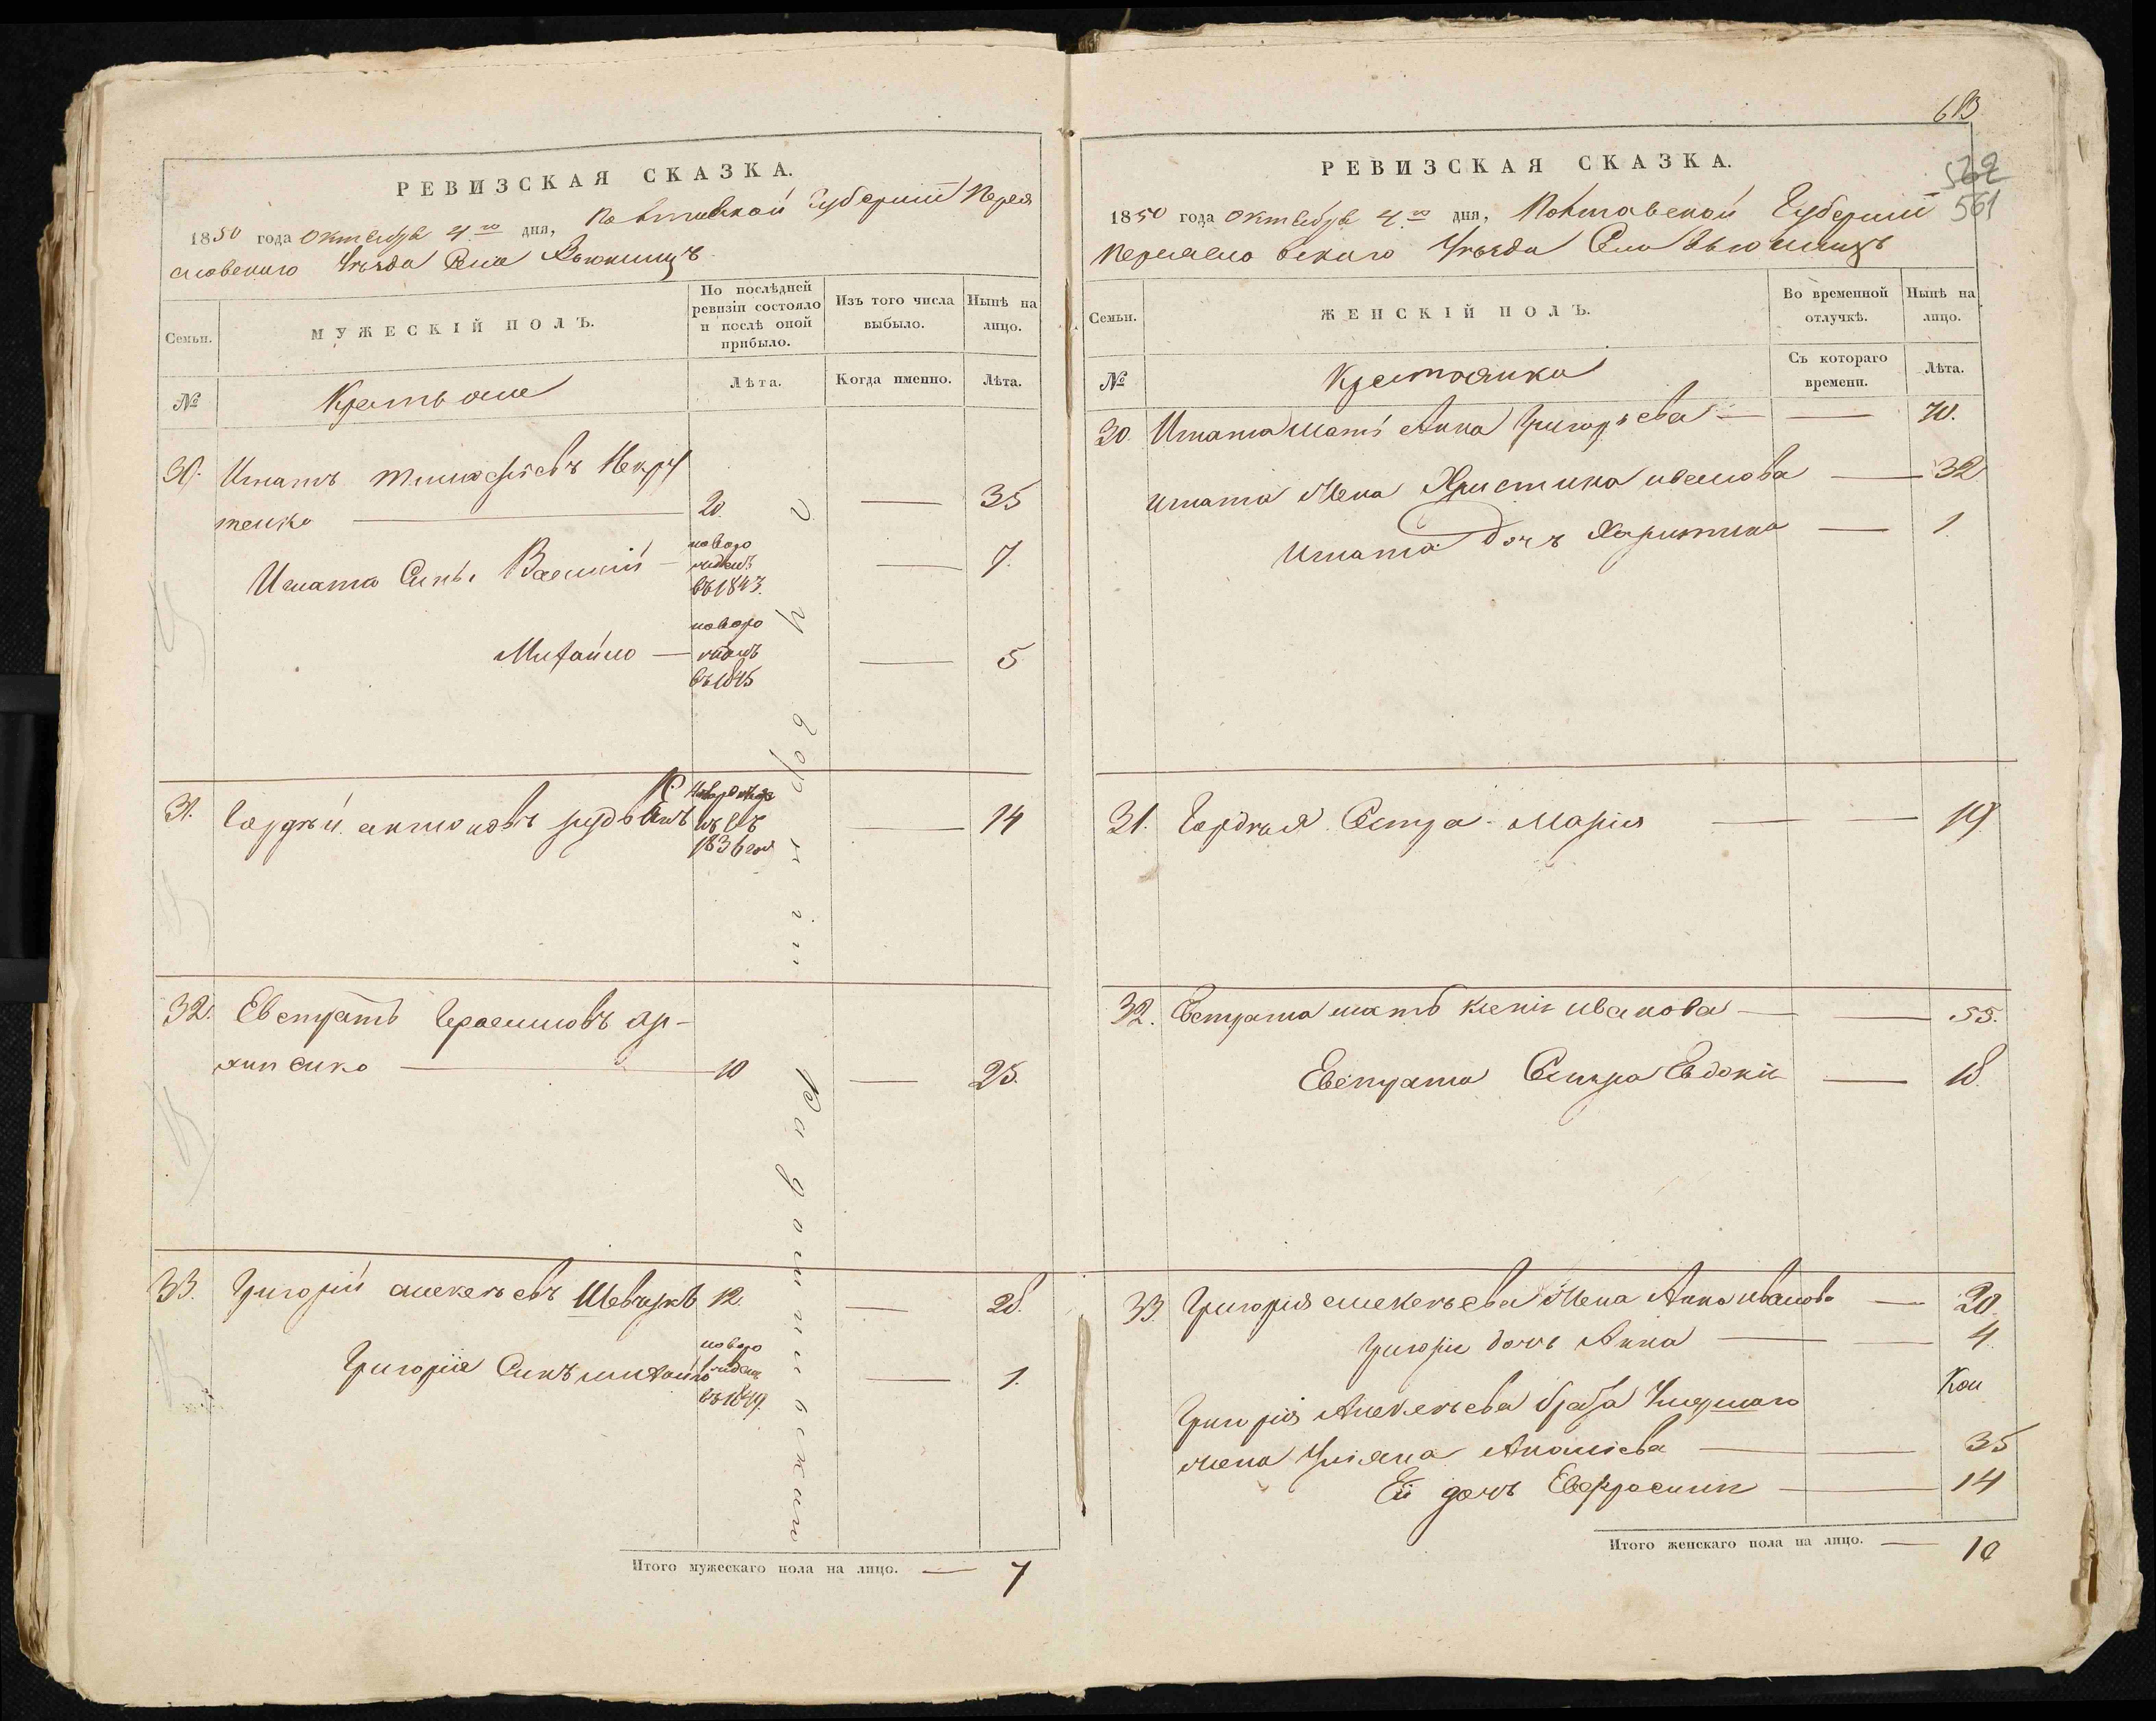 РЕВИЗСКАЯ СКАЗКА.
1850 года Октября 4.го дня, Полтавской Губернии Перея
словского Уезда Села Вьюнищъ
Семьи.
МУЖЕСКІЙ ПОЛЪ.
По послѣдней
ревизіи состояло
и послѣ оной
прибыло.
Изъ того числа
выбыло.
Нынѣ на
лицо.
№
Крестьяне
Лѣта.
Когда именно.
Лѣта.
30. Игнатъ Тимофіевъ Некру
тенко — 20. — 35
Игната Сынъ. Василій — новоро
жденъ
въ 1843. — 7.
Михайло — новоро
жденъ
въ 1845 — 5
31. Гордѣй антоновъ — 14
1836 год
32. Евстратъ Герасимовъ ар-
хипенко — 10 — 25.
33. Григорій алексѣевъ Шевчукъ 12. — 28.
Григорія Сынъ михайло новоро
жденъ
въ 1849. — 1.
Итого мужескаго пола на лицо. — 7
613
562
561
РЕВИЗСКАЯ СКАЗКА.
1850 года Октября 4.го дня, Полтавской Губерніи
Переясловского Уѣзда Села Вьюнищъ
Семьи.
ЖЕНСКІЙ ПОЛЪ.
Во временной
отлучкѣ.
Нынѣ на
лицо.
№
Крестьянки
Съ котораго
времени.
Лѣта.
30. Игната мать Анна Григорьева — — 70.
Игната Жена Христина иванова — 32
Игната дочь Харитина — 1.
31. Гордѣя Сестра Марія — — 19.
32. Евстрата мать Ксенія иванова — — 55.
Евстрата Сестра Евдокія — 18.
33. Григорія алексѣева Жена Анна иванова — 20.
Григорія дочь Анна — — 4.
Григорія Алексѣева брата Умершаго
жена Ульяна Ананіева — — 35
Ей дочь Евфросинія — 14
Итого женскаго пола на лицо. — 10